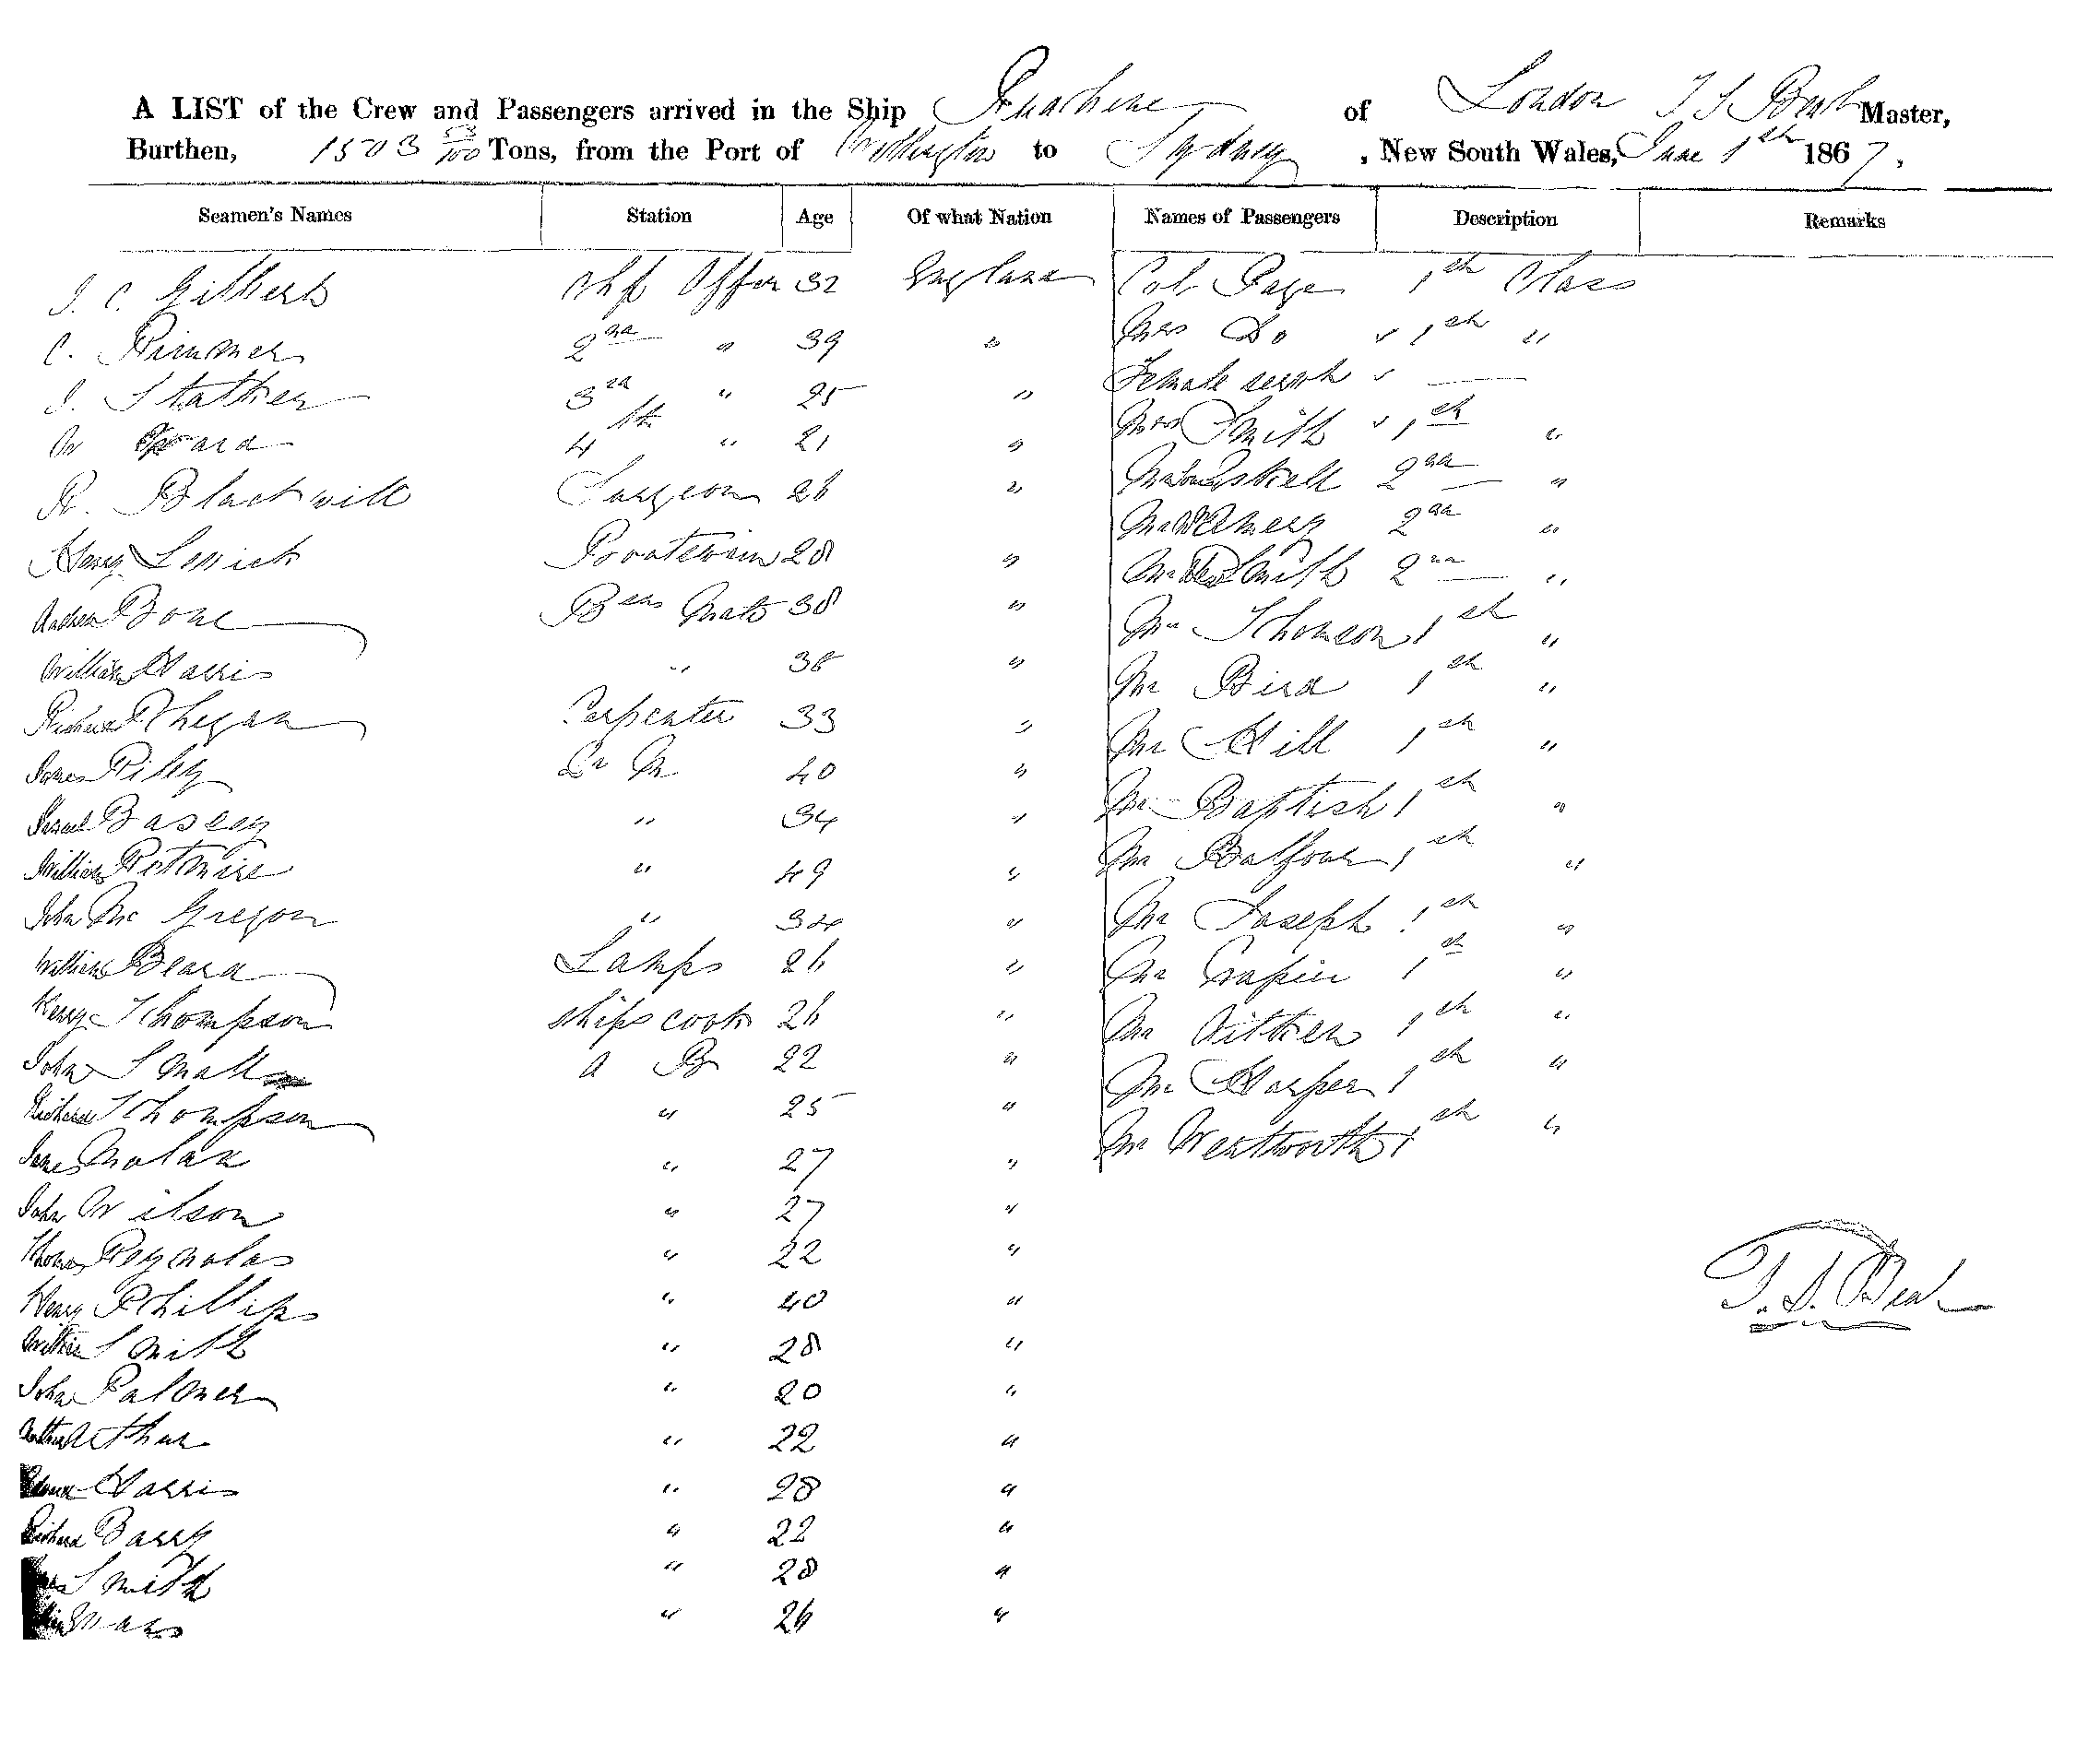 A LIST of the Crew and Passengers arrived in the Ship Ruahine of London T S Beal Master,
Burthen, 1503 53/100 Tons, from the Port of Wellington to Sydney, New South Wales, June 1st 1867,
Seamen's Names Station Age Of what Nation Names of Passengers Description Remarks
J. C. Gilbert Chf Offr 32 England Col. Page 1st Class
C. Rimmer 2nd " 39 " Mrs Do 1st "
J. Stather 3rd " 25 " Female servt
W Ward 4th " 21 " Mrs Smith 1st "
R. Blackwill Surgeon 26 " 2nd "
Henry Lewick Boatswain 28 " 2nd "
Andrew Bone Bsns Mate 38 " Smith 2nd "
William Harris " 38 " Mr Thomson 1st "
Richard Phegan Carpenter 33 " Mr Bird 1st "
James Riley Qr M 40 " Mr Hill 1st "
Samuel Bassey " 34 " Mr Baptist 1st "
William " 49 " Mr Balfour 1st "
John Mc Gregor " 34 " Mr Joseph 1st "
William Beard Lamps 26 " Mr 1st "
Henry Thompson Ships cook 26 " Mr Aitken 1st "
John Small A B 22 " Mr Harper 1st "
Richard Thompson " 25 " Mr Wentworth 1st "
James Nolan " 27 "
John Wilson " 27 "
Thomas Reynolds " 22 "
Henry Phillips " 40 "
William Smith " 28 "
John Palmer " 20 "
Arthur " 22 "
Harris " 28 "
Richard Barry " 22 "
Smith " 28 "
" 26 "
T. S. Beal